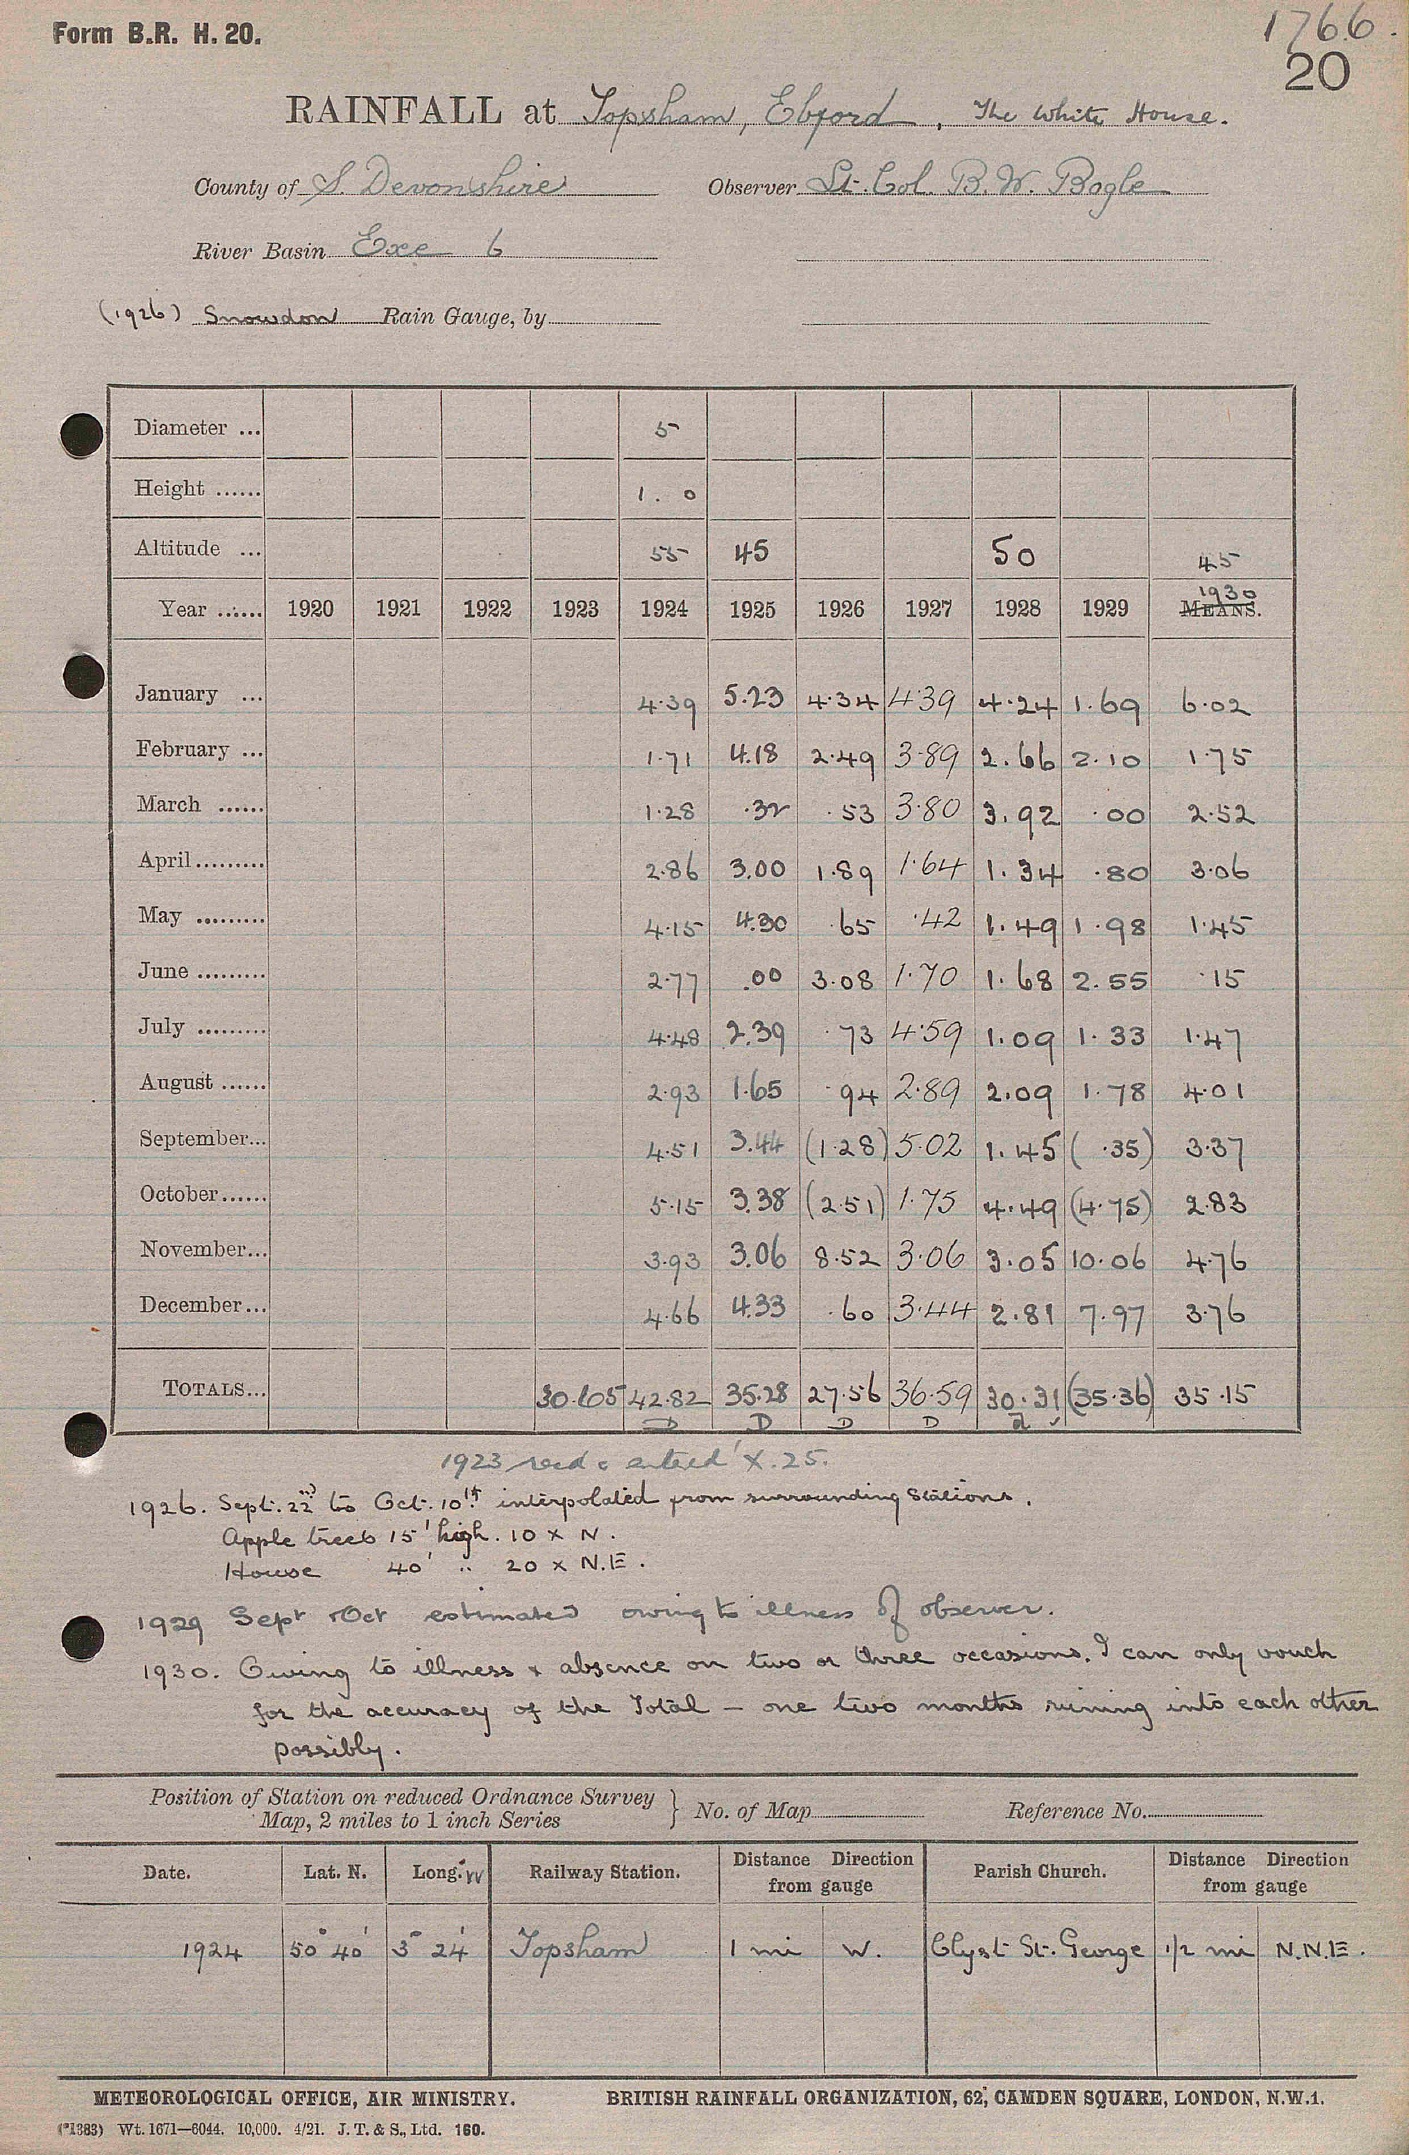 Form B.R. H. 20.
1766.
20
RAINFALL at Topsham, Ebford, The White House.
County of S. Devonshire Observer Lt. Col. B. W. Bogle
River Basin Exe 6
(1926) Snowdon Rain Gauge, by
Diameter ... 5
Height ...... 1. 0
Altitude ... 55 45 50 45
Year ...... 1920 1921 1922 1923 1924 1925 1926 1927 1928 1929 1930 MEANS.
January ... 4.39 5.23 4.34 4.39 4.24 1.69 6.02
February ... 1.71 4.18 2.49 3.89 2.66 2.10 1.75
March ...... 1.28 .32 .53 3.80 3.92 .00 2.52
April ......... 2.86 3.00 1.89 1.64 1.34 .80 3.06
May ......... 4.15 4.30 .65 .42 1.49 1.98 1.45
June ......... 2.77 .00 3.08 1.70 1.68 2.55 .15
July ......... 4.48 2.39 .73 4.59 1.09 1.33 1.47
August ...... 2.93 1.65 .94 2.89 2.09 1.78 4.01
September... 4.51 3.44 (1.28) 5.02 1.45 (.35) 3.37
October...... 5.15 3.38 (2.51) 1.75 4.49 (4.75) 2.83
November... 3.93 3.06 8.52 3.06 3.05 10.06 4.76
December... 4.66 4.33 .60 3.44 2.81 7.97 3.76
TOTALS... 30.605 42.82 35.28 27.56 36.59 30.31 (35.36) 35.15
D D D D
1923 recd & entered X. 25.
1926. Sept. 22nd to Oct. 10th interpolated from surrounding stations.
Apple trees 15' high. 10 x N.
House 40' " 20 x N.E.
1929 Sept & Oct estimated owing to illness of observer.
1930. Owing to illness & absence on two or three occasions. I can only vouch
for the accuracy of the Total — one two months runing into each other
possibly.
Position of Station on reduced Ordnance Survey
Map, 2 miles to 1 inch Series } No. of Map Reference No.
Date. Lat. N. Long. W Railway Station. Distance Direction from gauge Parish Church. Distance Direction from gauge
1924 50° 40' 3° 24' Topsham 1 mi W. Clyst St. George 1/2 mi N.N.E.
METEOROLOGICAL OFFICE, AIR MINISTRY. BRITISH RAINFALL ORGANIZATION, 62, CAMDEN SQUARE, LONDON, N.W.1.
(*1383) Wt. 1671—6044. 10,000. 4/21. J. T. & S., Ltd. 160.